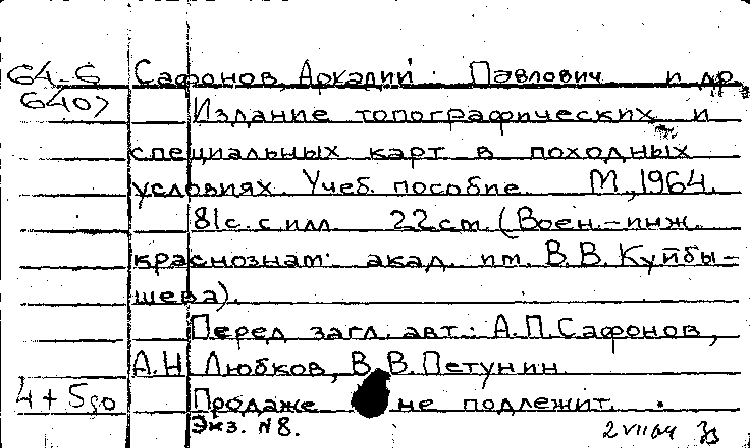 64-6 Сафонов, Аркадий Павлович и др.
6407 Издание топографических и
специальных карт в походных
условиях. Учеб. пособие. М., 1964.
81с. с илл. 22см. (Воен.-инж.
краснознам. акад. им. В.В. Куйбы-
шева).
Перед загл. авт.: А.П. Сафонов,
А.Н. Любков, В.В. Петунин.
Продаже не подлежит.
Экз. №8.